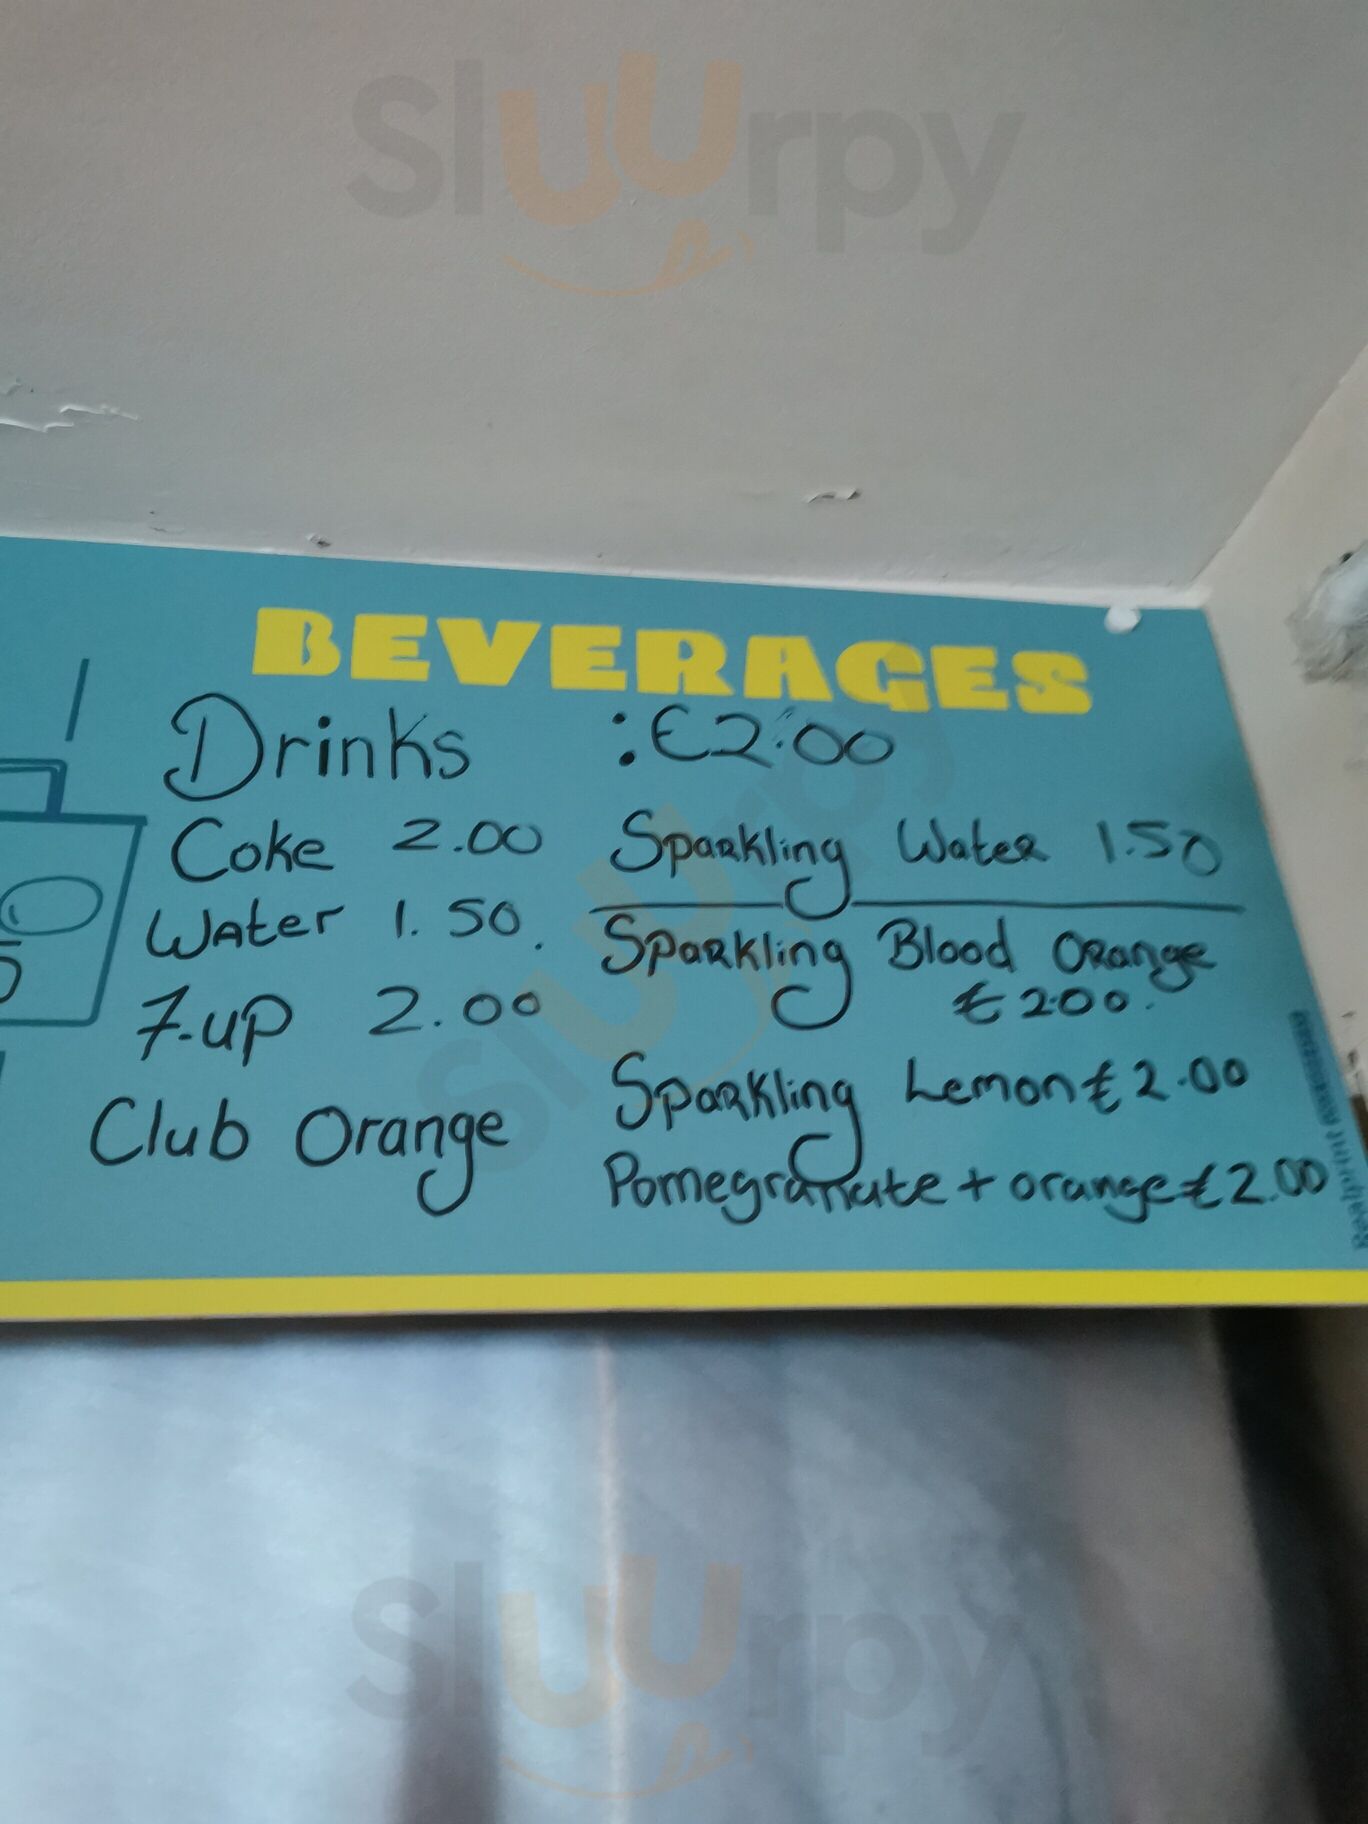 Sluurpy
BEVERAGES
Drinks :€2.00
Coke 2.00
Water 1.50.
7-up 2.00
Club Orange
Sparkling Water 1.50
Sparkling Blood Orange
€2.00.
Sparkling Lemon €2.00
Pomegranate + orange €2.00
Sluurpy
Sluurpy